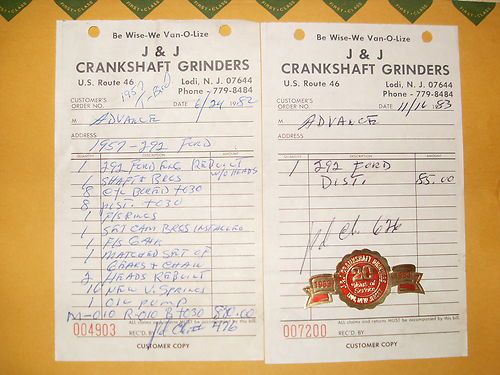 FIRST-CLASS
Be Wise-We Van-O-Lize
J & J
CRANKSHAFT GRINDERS
U.S. Route 46
Lodi, N. J. 07644
Phone - 779-8484
1957
T-Bird
CUSTOMER'S
ORDER NO.
DATE 6/24 1982
M ADVANCE
ADDRESS
1957-292 FORD
QUANTITY DESCRIPTION AMOUNT
1 292 FORD ENG REBUILT
W/HEADS
1 SHAFT & BRGS
8 CYL BORED +030
8 PIST. +030
1 P/S RINGS
1 SET CAM BRGS INSTALLED
1 F/S GASK
1 MATCHED SET OF
GEARS & CHAIN
2 HEADS REBUILT
16 NEW V. SPRINGS
1 OIL PUMP
M-010 R-010 B+030
ALL claims and returns MUST be accompanied by this bill.
004903
REC'D. BY
476
CUSTOMER COPY
Be Wise-We Van-O-Lize
J & J
CRANKSHAFT GRINDERS
U.S. Route 46
Lodi, N. J. 07644
Phone - 779-8484
CUSTOMER'S
ORDER NO.
DATE 11/16 83
M ADVANCE
ADDRESS
QUANTITY DESCRIPTION AMOUNT
1 292 FORD
DIST. 85.00
Pd Ch. 626
J & J CRANKSHAFT GRINDERS
1962
20
Years of
Service
1982
LODI, NEW JERSEY
ALL claims and returns MUST be accompanied by this bill.
007200
REC'D. BY
CUSTOMER COPY